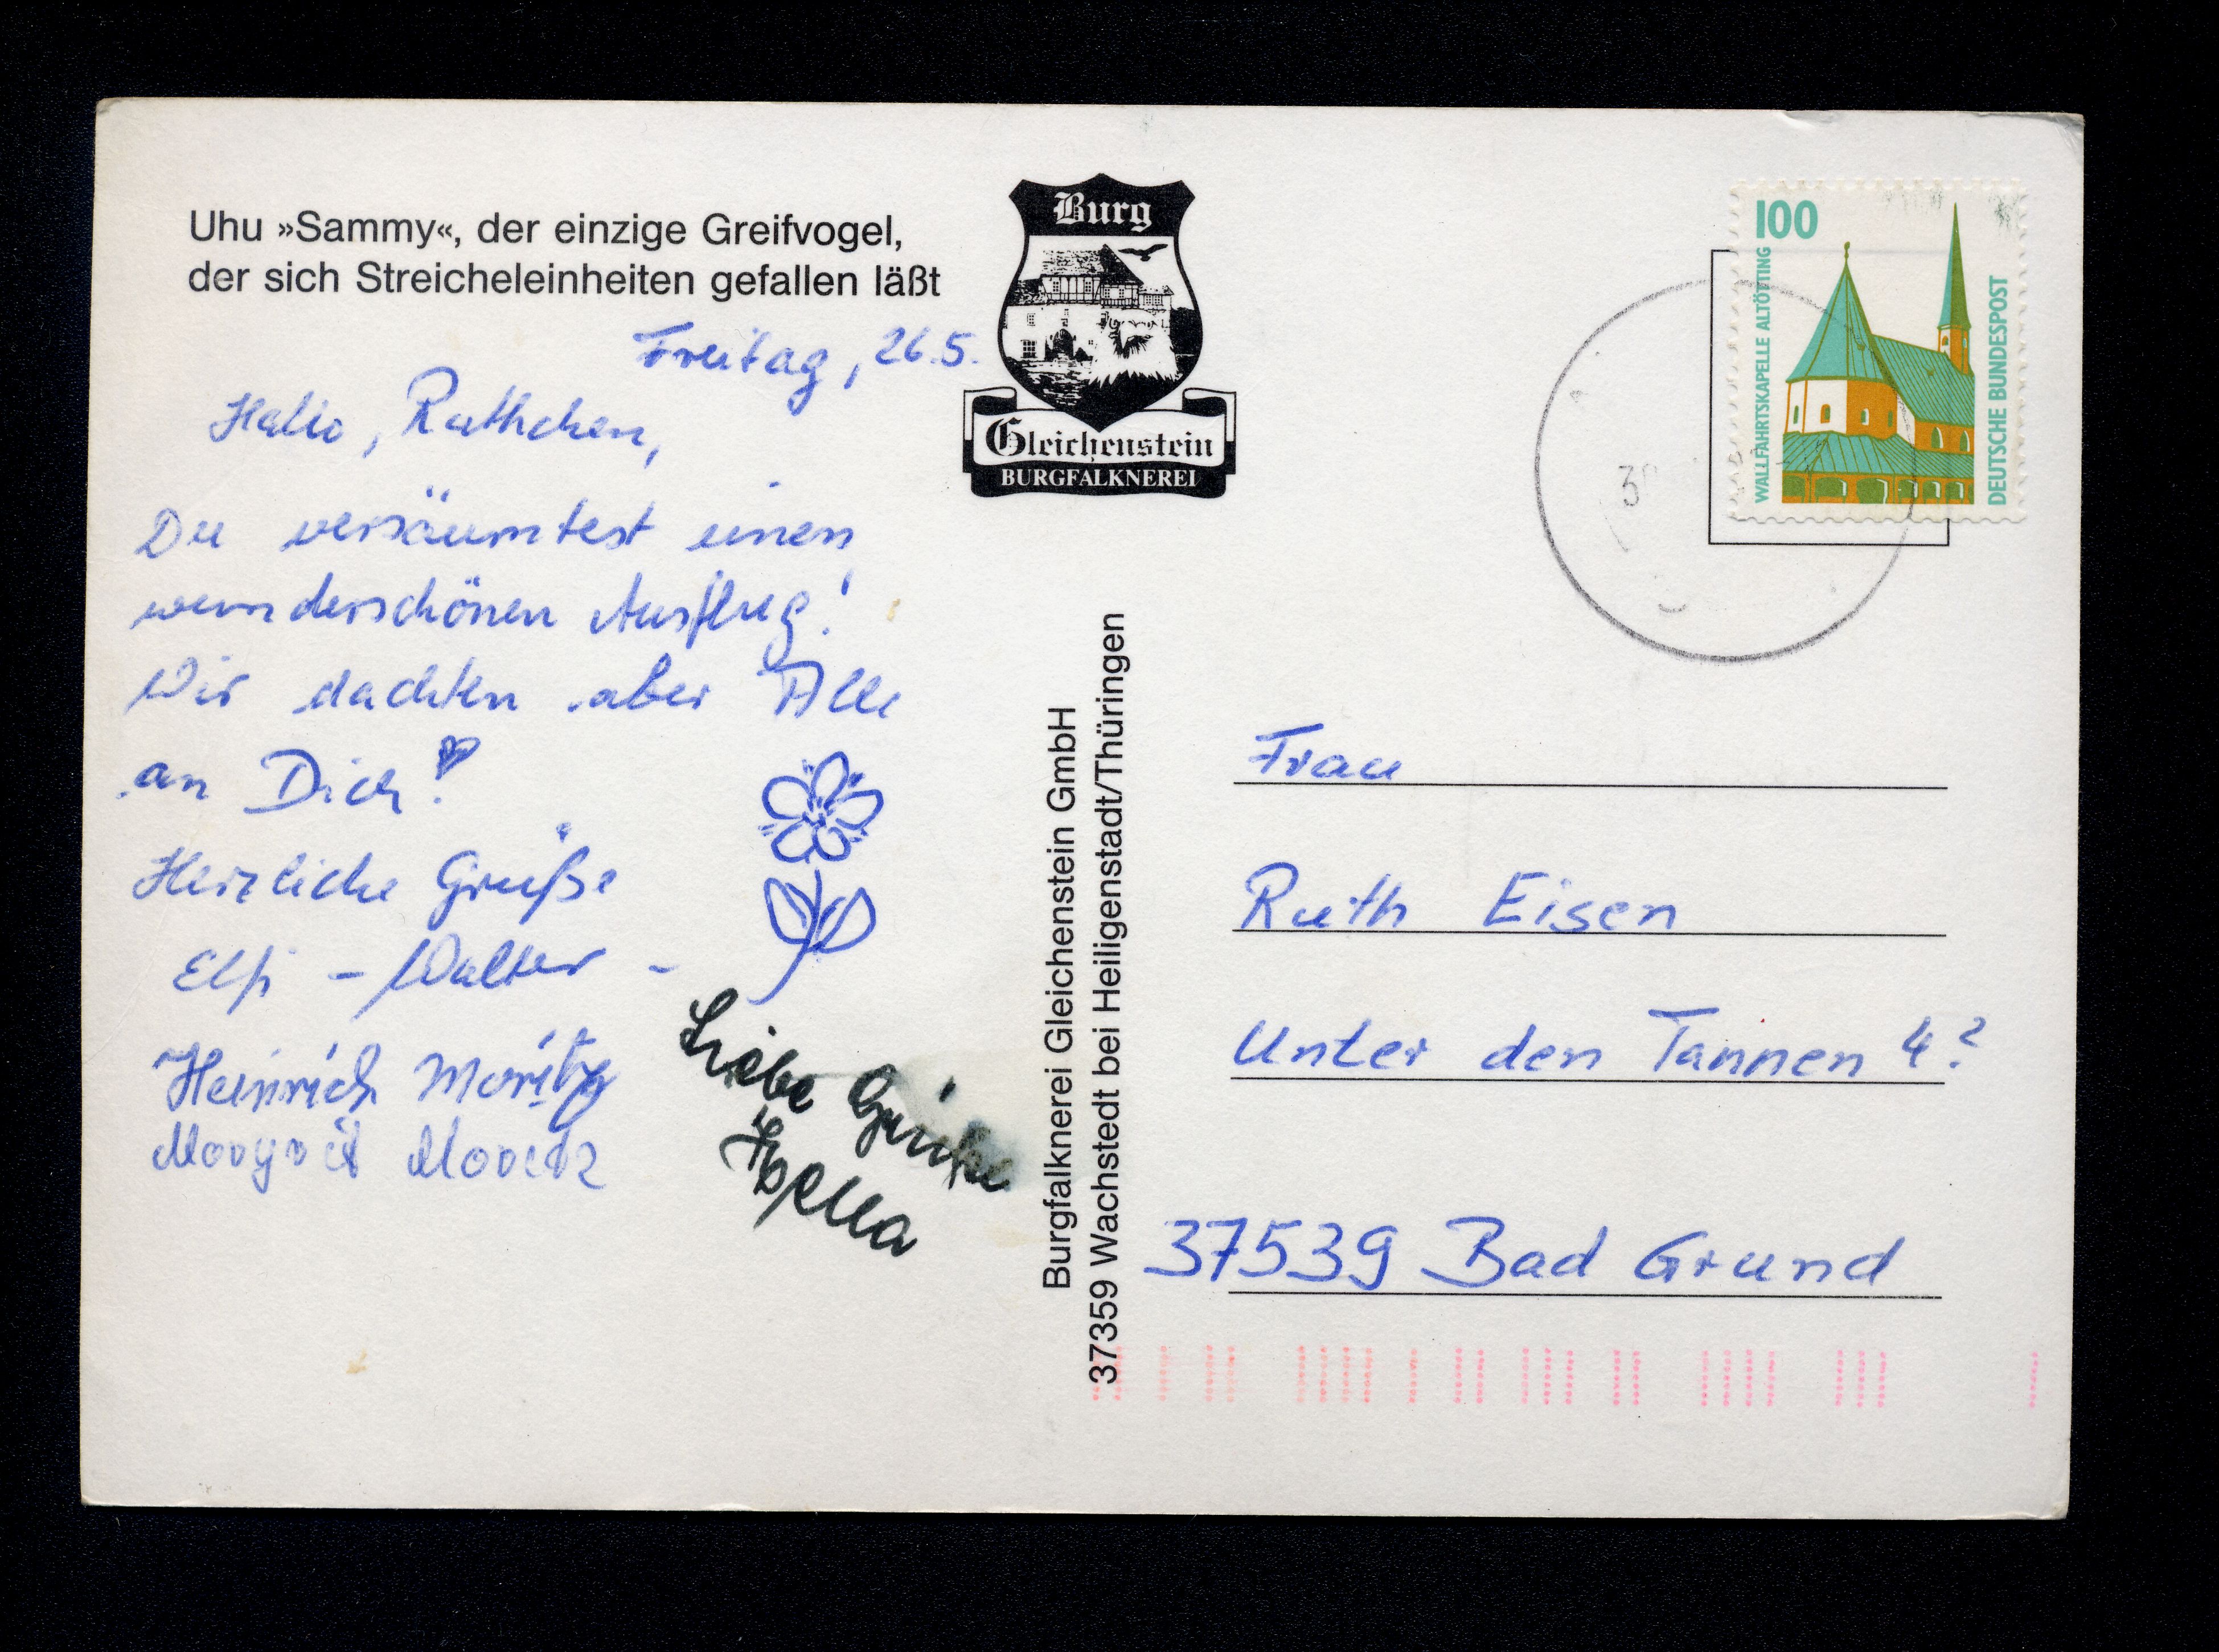 Uhu »Sammy«, der einzige Greifvogel,
der sich Streicheleinheiten gefallen läßt
Freitag, 26.5.
Hallo, Ruthchen,
Du versäumtest einen
wunderschönen Ausflug!
Wir dachten aber Alle
an Dich!
Herzliche Grüße
Elfi - Walter -
Heinrich Moritz
Margrit Moritz
Liebe Grüße
Burg
Gleichenstein
BURGFALKNEREI
Burgfalknerei Gleichenstein GmbH
37359 Wachstedt bei Heiligenstadt/Thüringen
100
WALLFAHRTSKAPELLE ALTÖTTING
DEUTSCHE BUNDESPOST
Frau
Ruth Eisen
Unter den Tannen 4?
37539 Bad Grund